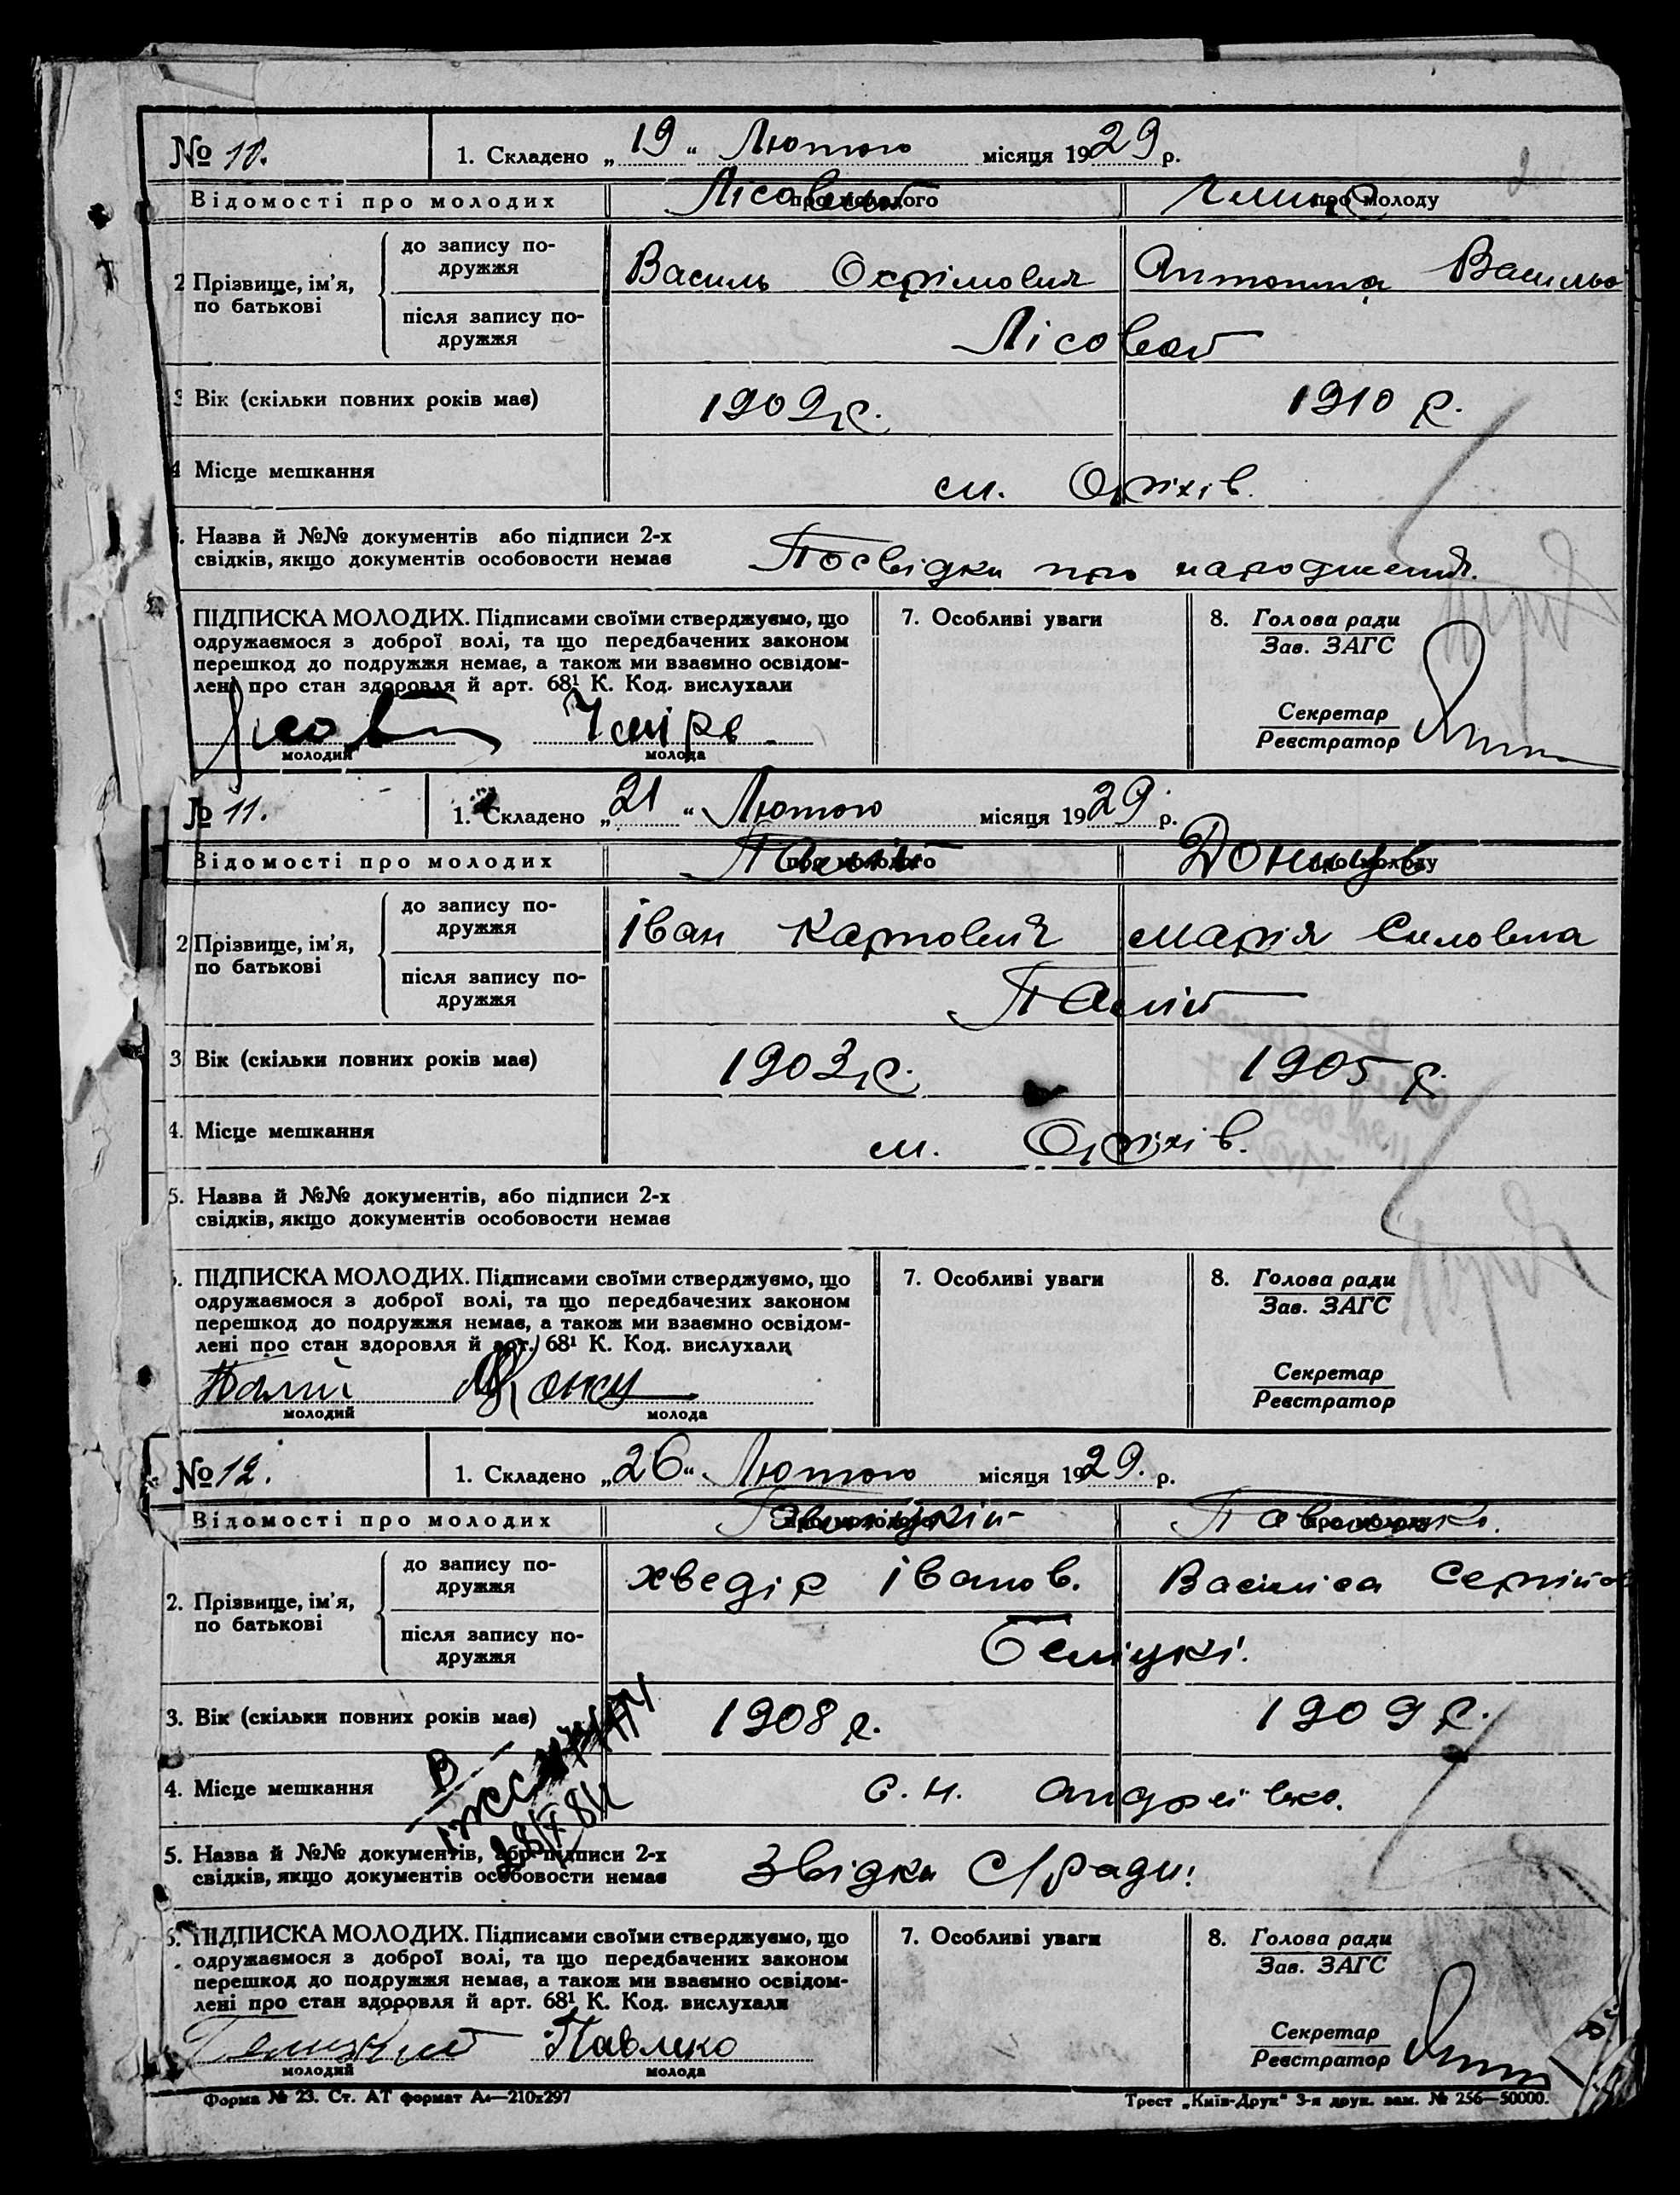 № 10. 1. Складено „19" Лютого місяця 1929 р.
Відомості про молодих про молодого про молоду
Лісовий
2 Прізвище, ім'я, по батькові
до запису подружжя
Василь Охрімович Антонина Василье
після запису подружжя
Лісовой
3 Вік (скільки повних років має) 1909 р. 1910 р.
4 Місце мешкання м. Оріхів.
Назва й №№ документів або підписи 2-х
свідків, якщо документів особовости немає
Посвідки про народження.
ПІДПИСКА МОЛОДИХ. Підписами своїми стверджуємо, що
одружаємося з доброї волі, та що передбачених законом
перешкод до подружжя немає, а також ми взаємно освідом-
лені про стан здоровля й арт. 68¹ К. Код. вислухали
молодий молода
7. Особливі уваги
8. Голова ради
Зав. ЗАГС
Секретар
Реєстратор
№ 11. 1. Складено „21" Лютого місяця 1929 р.
Відомості про молодих про молодого про молоду
Палій Донець
2 Прізвище, ім'я, по батькові
до запису подружжя
Іван Карпович Марія Силовна
після запису подружжя
Палій
3 Вік (скільки повних років має) 1903 р. 1905 р.
4. Місце мешкання м. Оріхів.
5. Назва й №№ документів, або підписи 2-х
свідків, якщо документів особовости немає
ПІДПИСКА МОЛОДИХ. Підписами своїми стверджуємо, що
одружаємося з доброї волі, та що передбачених законом
перешкод до подружжя немає, а також ми взаємно освідом-
лені про стан здоровля й арт. 68¹ К. Код. вислухали
Палій
молодий молода
7. Особливі уваги
8. Голова ради
Зав. ЗАГС
Секретар
Реєстратор
№ 12. 1. Складено „26" Лютого місяця 1929. р.
Відомості про молодих про молодого про молоду
2. Прізвище, ім'я, по батькові
до запису подружжя
Хведір Іванов. Васіліса Сергійов
після запису подружжя
Беліцкі.
3. Вік (скільки повних років має) 1908 р. 1909 р.
4. Місце мешкання с. Н. Андреївка.
5. Назва й №№ документів, або підписи 2-х
свідків, якщо документів особовости немає
Звідки С/ради.
ПІДПИСКА МОЛОДИХ. Підписами своїми стверджуємо, що
одружаємося з доброї волі, та що передбачених законом
перешкод до подружжя немає, а також ми взаємно освідом-
лені про стан здоровля й арт. 68¹ К. Код. вислухали
Павлико
молодий молода
7. Особливі уваги
8. Голова ради
Зав. ЗАГС
Секретар
Реєстратор
Форма № 23. Ст. АТ формат А₄—210x297
Трест „Київ-Друк" 3-я друк. зам. № 256—50000.